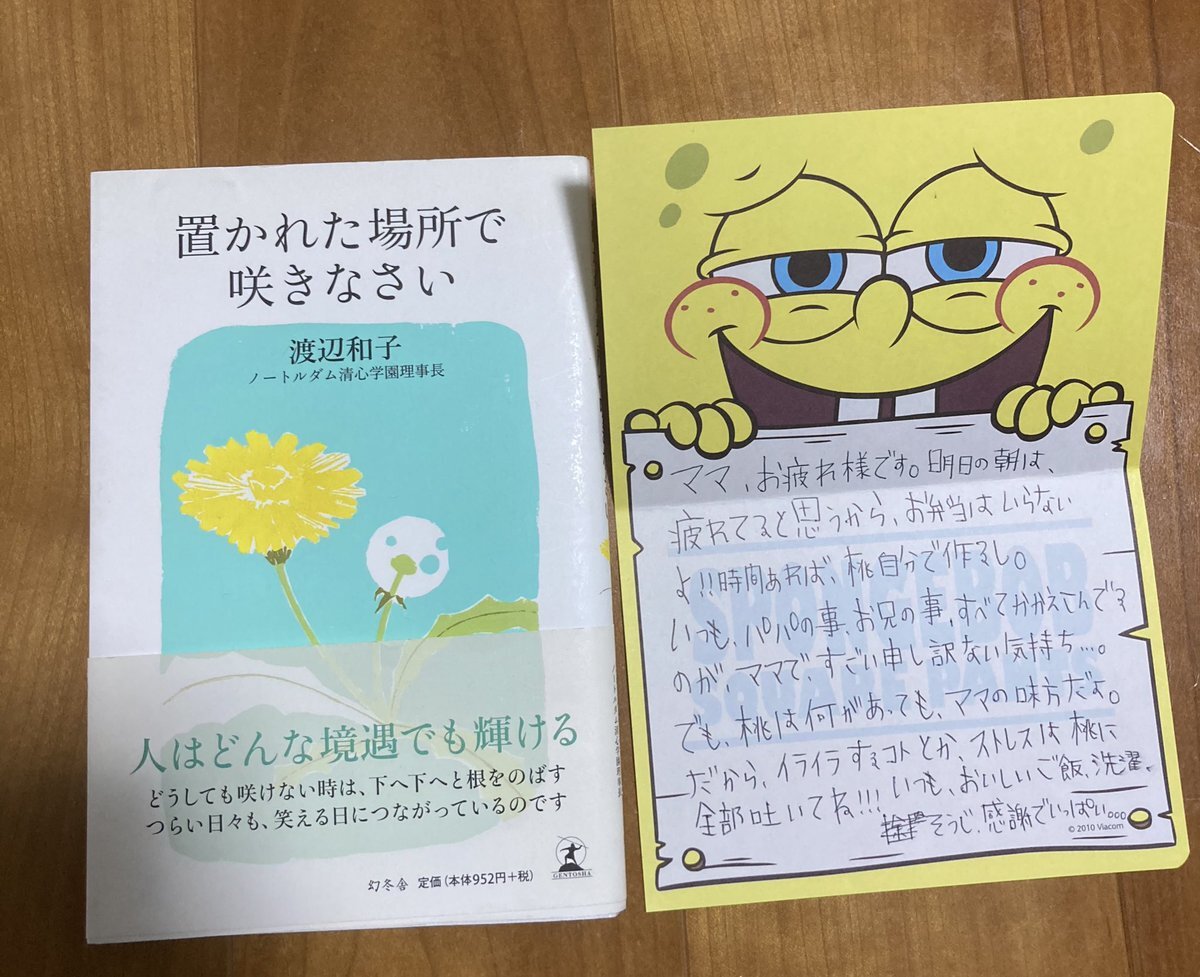 置かれた場所で
咲きなさい
渡辺和子
ノートルダム清心学園理事長
人はどんな境遇でも輝ける
どうしても咲けない時は、下へ下へと根をのばす
つらい日々も、笑える日につながっているのです
幻冬舎 定価(本体952円+税)
GENTOSHA
ママ、お疲れ様です。明日の朝は、
疲れてると思うから、お弁当はいらない
よ!!時間あれば、桃自分で作るし。
いつも、パパの事、お兄の事、すべてかかえこんでる
のが ママで、すごい申し訳ない気持ち…。
でも、桃は何があっても、ママの味方だよ。
だから、イライラするコトとか、ストレスは桃に
全部吐いてね!!! いつも、おいしいご飯、洗濯、
そうじ、感謝でいっぱい。。。
SPONGEBOB
SQUAREPANTS
© 2010 Viacom